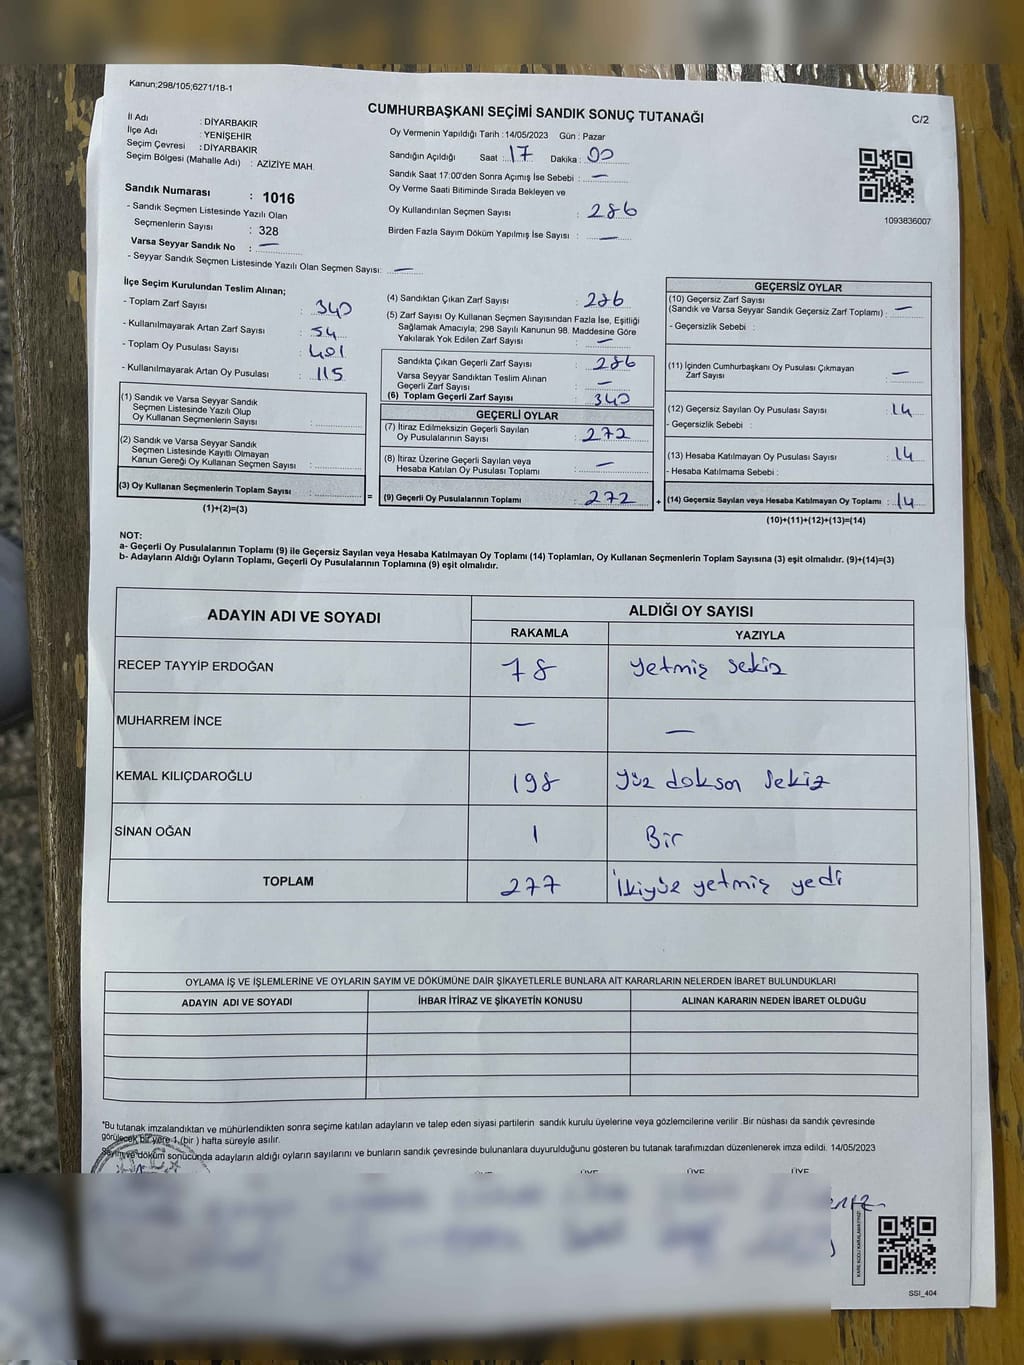 Kanun;298/105;6271/18-1
CUMHURBAŞKANI SEÇİMİ SANDIK SONUÇ TUTANAĞI
C/2
İl Adı : DİYARBAKIR
İlçe Adı : YENİŞEHİR
Seçim Çevresi : DİYARBAKIR
Seçim Bölgesi (Mahalle Adı) : AZIZIYE MAH.
Sandık Numarası : 1016
- Sandık Seçmen Listesinde Yazılı Olan
Seçmenlerin Sayısı : 328
Varsa Seyyar Sandık No : —
- Seyyar Sandık Seçmen Listesinde Yazılı Olan Seçmen Sayısı: —
Oy Vermenin Yapıldığı Tarih : 14/05/2023 Gün : Pazar
Sandığın Açıldığı Saat : 17 Dakika : 00
Sandık Saat 17:00'den Sonra Açımış İse Sebebi : —
Oy Verme Saati Bitiminde Sırada Bekleyen ve
Oy Kullandırılan Seçmen Sayısı : 286
Birden Fazla Sayım Döküm Yapılmış İse Sayısı : —
1093836007
İlçe Seçim Kurulundan Teslim Alınan;
- Toplam Zarf Sayısı : 340
- Kullanılmayarak Artan Zarf Sayısı : 54
- Toplam Oy Pusulası Sayısı : 401
- Kullanılmayarak Artan Oy Pusulası : 115
(1) Sandık ve Varsa Seyyar Sandık
Seçmen Listesinde Yazılı Olup
Oy Kullanan Seçmenlerin Sayısı :
(2) Sandık ve Varsa Seyyar Sandık
Seçmen Listesinde Kayıtlı Olmayan
Kanun Gereği Oy Kullanan Seçmen Sayısı :
(3) Oy Kullanan Seçmenlerin Toplam Sayısı :
(1)+(2)=(3)
=
(4) Sandıktan Çıkan Zarf Sayısı : 286
(5) Zarf Sayısı Oy Kullanan Seçmen Sayısından Fazla İse, Eşitliği
Sağlamak Amacıyla; 298 Sayılı Kanunun 98. Maddesine Göre
Yakılarak Yok Edilen Zarf Sayısı : —
Sandıkta Çıkan Geçerli Zarf Sayısı : 286
Varsa Seyyar Sandıktan Teslim Alınan
Geçerli Zarf Sayısı : —
(6) Toplam Geçerli Zarf Sayısı : 340
GEÇERLİ OYLAR
(7) İtiraz Edilmeksizin Geçerli Sayılan
Oy Pusulalarının Sayısı : 272
(8) İtiraz Üzerine Geçerli Sayılan veya
Hesaba Katılan Oy Pusulası Toplamı : —
(9) Geçerli Oy Pusulalarının Toplamı : 272
+
GEÇERSİZ OYLAR
(10) Geçersiz Zarf Sayısı
(Sandık ve Varsa Seyyar Sandık Geçersiz Zarf Toplamı) : —
- Geçersizlik Sebebi :
(11) İçinden Cumhurbaşkanı Oy Pusulası Çıkmayan
Zarf Sayısı : —
(12) Geçersiz Sayılan Oy Pusulası Sayısı : 14
- Geçersizlik Sebebi :
(13) Hesaba Katılmayan Oy Pusulası Sayısı : 14
- Hesaba Katılmama Sebebi :
(14) Geçersiz Sayılan veya Hesaba Katılmayan Oy Toplamı : 14
(10)+(11)+(12)+(13)=(14)
NOT:
a- Geçerli Oy Pusulalarının Toplamı (9) ile Geçersiz Sayılan veya Hesaba Katılmayan Oy Toplamı (14) Toplamları, Oy Kullanan Seçmenlerin Toplam Sayısına (3) eşit olmalıdır. (9)+(14)=(3)
b- Adayların Aldığı Oyların Toplamı, Geçerli Oy Pusulalarının Toplamına (9) eşit olmalıdır.
ADAYIN ADI VE SOYADI ALDIĞI OY SAYISI
RAKAMLA YAZIYLA
RECEP TAYYİP ERDOĞAN 78 yetmiş sekiz
MUHARREM İNCE — —
KEMAL KILIÇDAROĞLU 198 yüz doksan sekiz
SİNAN OĞAN 1 Bir
TOPLAM 277 ikiyüz yetmiş yedi
OYLAMA İŞ VE İŞLEMLERİNE VE OYLARIN SAYIM VE DÖKÜMÜNE DAİR ŞİKAYETLERLE BUNLARA AİT KARARLARIN NELERDEN İBARET BULUNDUKLARI
ADAYIN ADI VE SOYADI İHBAR İTİRAZ VE ŞİKAYETİN KONUSU ALINAN KARARIN NEDEN İBARET OLDUĞU
*Bu tutanak imzalandıktan ve mühürlendikten sonra seçime katılan adayların ve talep eden siyasi partilerin sandık kurulu üyelerine veya gözlemcilerine verilir .Bir nüshası da sandık çevresinde
görülecek bir yere 1 (bir ) hafta süreyle asılır.
Sayım ve döküm sonucunda adayların aldığı oyların sayılarını ve bunların sandık çevresinde bulunanlara duyurulduğunu gösteren bu tutanak tarafımızdan düzenlenerek imza edildi. 14/05/2023
ÜYE ÜYE ÜYE ÜYE
KARE KODU KARALAMAYINIZ
SSI_404